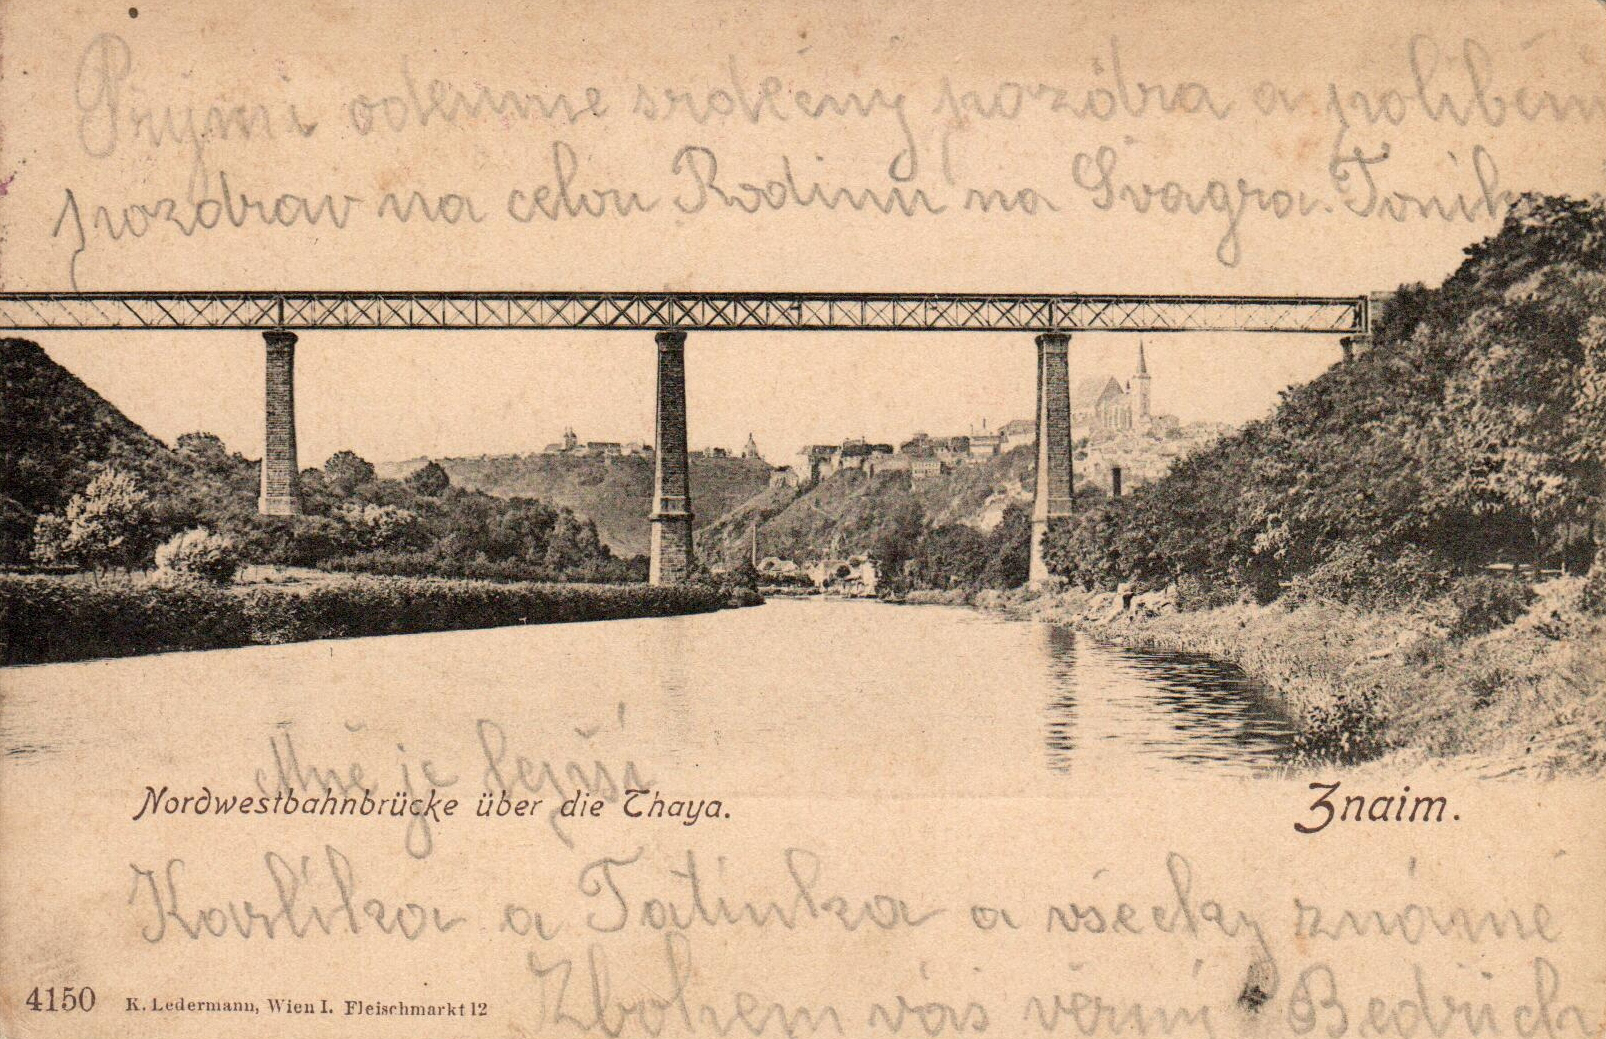 Přijmi odemne srdečný pozdra a políbení
pozdrav na celou Rodinu na Švagra. Toníka
Mně je lepší
Nordwestbahnbrücke über die Thaya.
Znaim.
Karlíka a Tatínka a všecky známé
Zbohem vás věrný Bedřich
4150 K. Ledermann, Wien I. Fleischmarkt 12